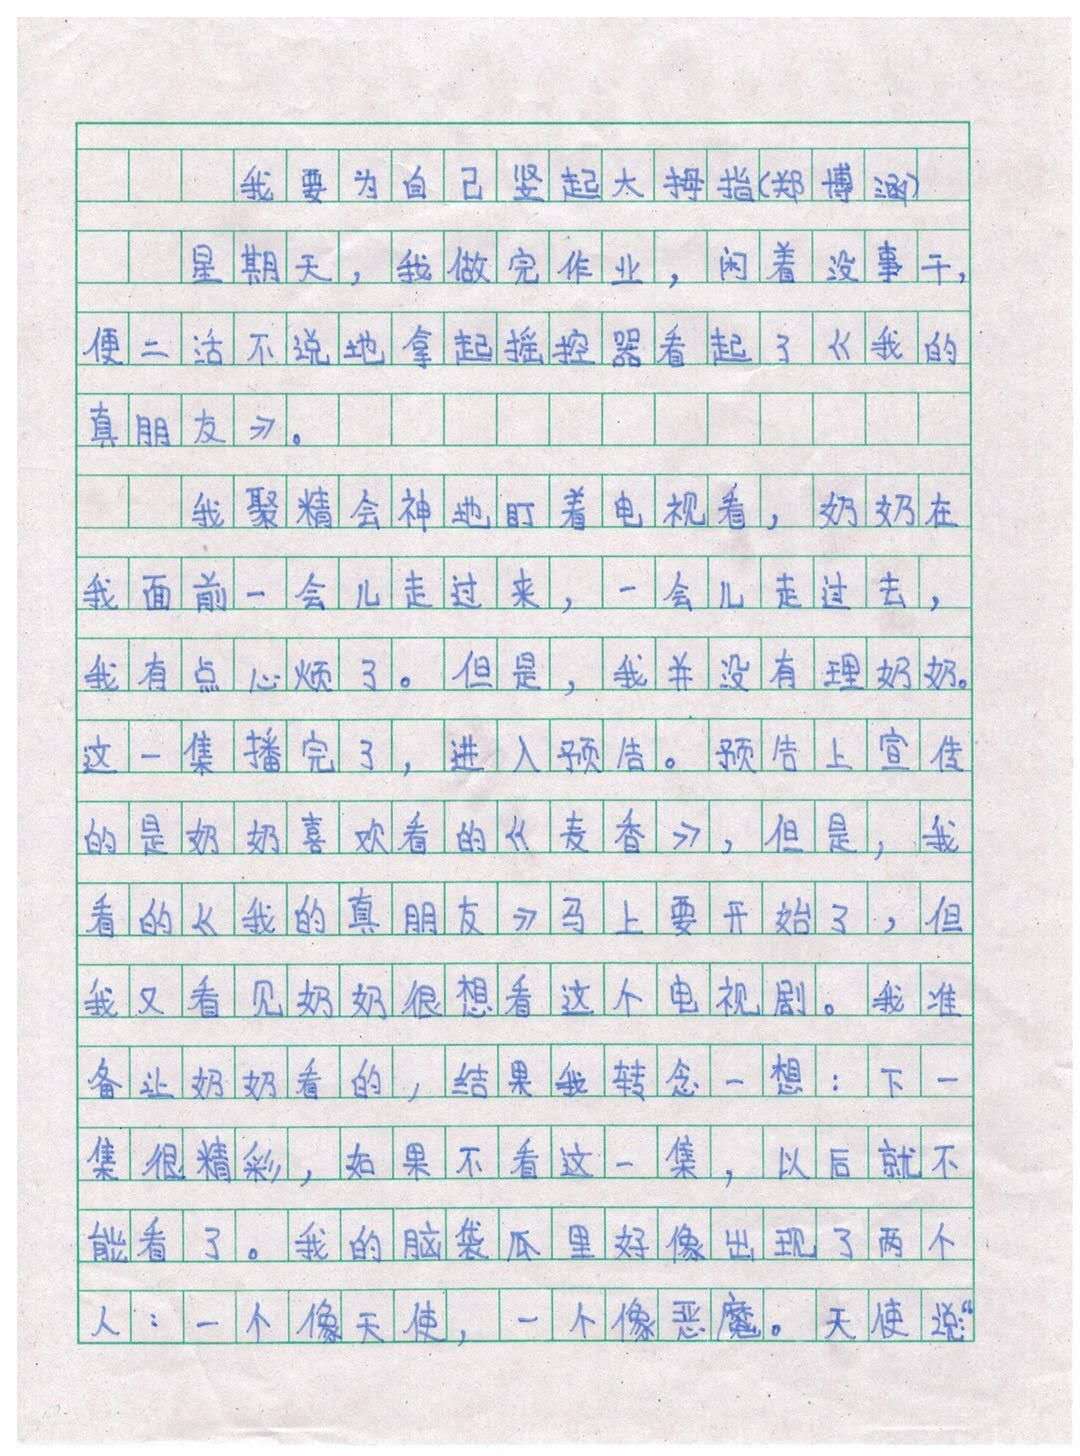 我要为自己坚起大拇指(郑博涵)
星期天，我做完作业，闲着没事干，
便二话不说地拿起摇控器看起了《我的
真朋友》。
我聚精会神地盯着电视看，奶奶在
我面前一会儿走过来，一会儿走过去，
我有点心烦了。但是，我并没有理奶奶。
这一集播完了，进入预告。预告上宣传
的是奶奶喜欢看的《麦香》，但是，我
看的《我的真朋友》马上要开始了，但
我又看见奶奶很想看这个电视剧。我准
备让奶奶看的，结果我转念一想：下一
集很精彩，如果不看这一集，以后就不
能看了。我的脑袋瓜里好像出现了两个
人：一个像天使，一个像恶魔。天使说：“